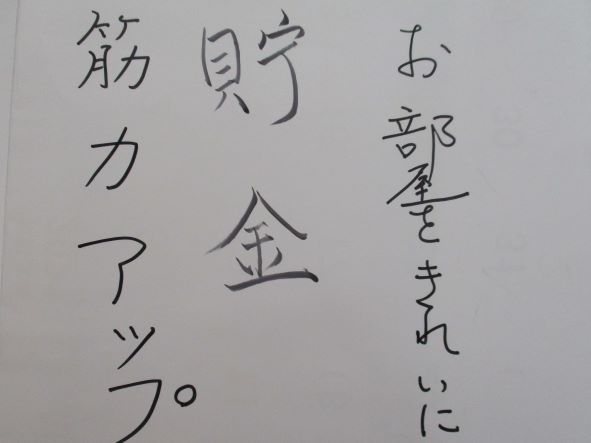 お部屋をきれいに
貯金
筋力アップ